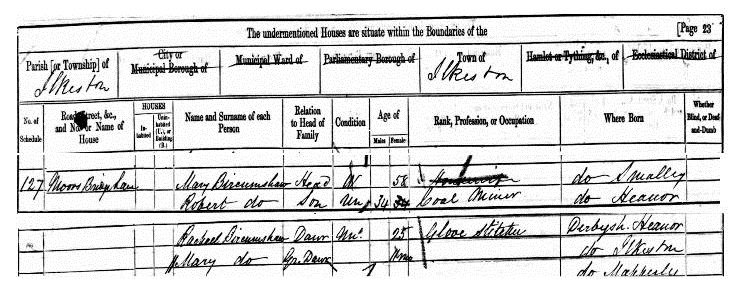 The undermentioned Houses are situate within the Boundaries of the [Page 23
Parish [or Township] of City or Municipal Borough of Municipal Ward of Parliamentary Borough of Town of Hamlet or Tything, &c., of Ecclesiastical District of
Ilkeston Ilkeston
No. of Schedule Road, Street, &c., and No. or Name of House HOUSES Inhabited Uninhabited (U.), or Building (B.) Name and Surname of each Person Relation to Head of Family Condition Age of Males Females Rank, Profession, or Occupation Where Born Whether Blind, or Deaf-and-Dumb
127 Moors Bridge Lane Mary Bircumshaw Head W 58 do Smalley
Robert do Son Un 34 Coal Miner do Heanor
Rachael Bircumshaw Daur Un 25 Glove Stitcher Derbysh. Heanor
Mary do Gr. Daur do Ilkeston
do Mapperley